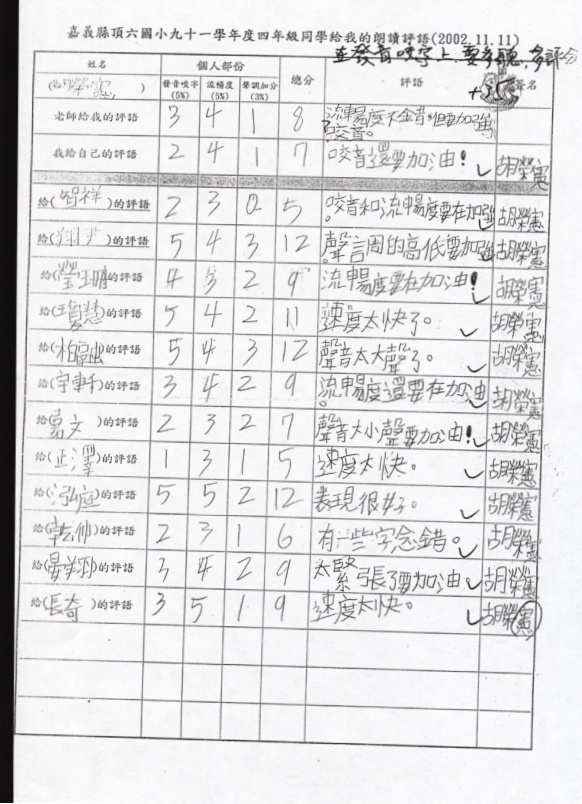 嘉義縣頂六國小九十一學年度四年級同學給我的朗讀評語(2002.11.11)
在發音咬字上,要多聽,多評分
姓名 個人部份 總分 評語 簽名
(胡榮憲) 發音咬字(5%) 流暢度(5%) 聲調加分(3%) +35
老師給我的評語 3 4 1 8 流暢度不錯,但要加強咬音。
我給自己的評語 2 4 1 7 咬音還要加油! 胡榮憲
給(智祥)的評語 2 3 0 5 咬音和流暢度要在加強。 胡榮憲
給(翔)的評語 5 4 3 12 聲調的高低要加強。 胡榮憲
給(瑩晴)的評語 4 3 2 9 流暢度要在加油! 胡榮憲
給(瓊慧)的評語 5 4 2 11 速度太快了。 胡榮憲
給(柏)的評語 5 4 3 12 聲音太大聲了。 胡榮憲
給(宇軒)的評語 3 4 2 9 流暢度還要在加油。 胡榮憲
給(嘉文)的評語 2 3 2 7 聲音太小聲要加油! 胡榮憲
給(正澤)的評語 1 3 1 5 速度太快。 胡榮憲
給(泓庭)的評語 5 5 2 12 表現很好。 胡榮憲
給(乾仲)的評語 2 3 1 6 有一些字念錯。 胡榮憲
給(晏翔)的評語 3 4 2 9 太緊張了要加油。 胡榮憲
給(長奇)的評語 3 5 1 9 速度太快。 胡榮憲